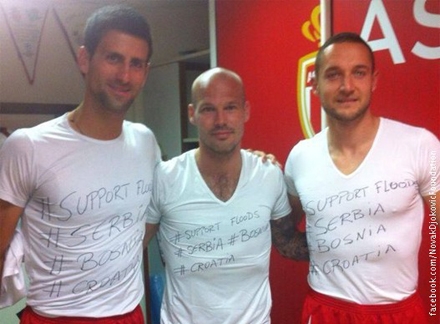 AS
#SUPPORT FLOODS
#SERBIA
#BOSNIA
#CROATIA
#SUPPORT FLOODS
#SERBIA #BOSNIA
#CROATIA
SUPPORT FLOODS
#SERBIA
#BOSNIA
#CROATIA
facebook.com/NovakDjokovicFoundation